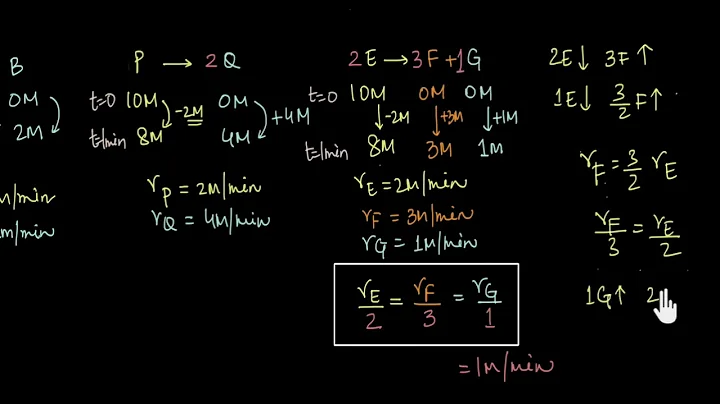 B
0M
2M
M/min
m/min
P → 2Q
t=0 10M 0M
-2M +4M
t=1min 8M 4M
r_P = 2M/min
r_Q = 4M/min
2E → 3F + 1G
t=0 10M 0M 0M
-2M +3M +1M
t=1min 8M 3M 1M
r_E = 2M/min
r_F = 3M/min
r_G = 1M/min
r_E/2 = r_F/3 = r_G/1
= 1M/min
2E↓ 3F↑
1E↓ 3/2 F↑
r_F = 3/2 r_E
r_F/3 = r_E/2
1G↑ 2